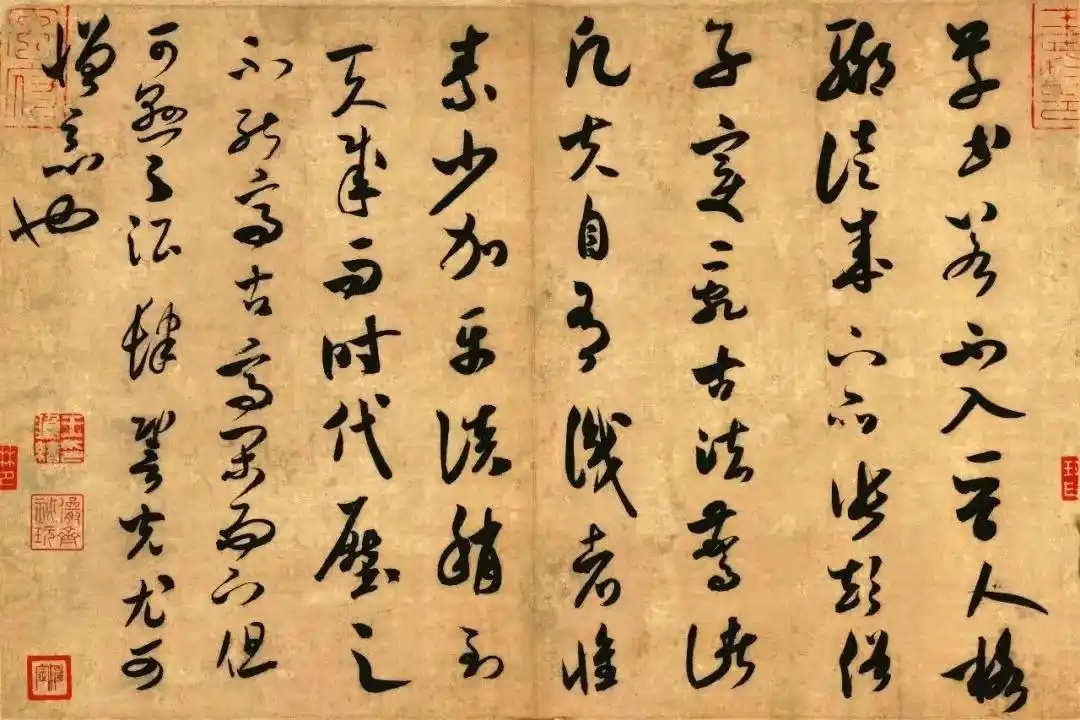 草書若不入晉人格
輒徒成下品張顛俗
子變亂古法驚諸
凡夫自有識者懷
素少加平淡稍到
天成而時代壓之
不能高古高閑而下但
可懸之酒肆䛒光尤可
憎惡也